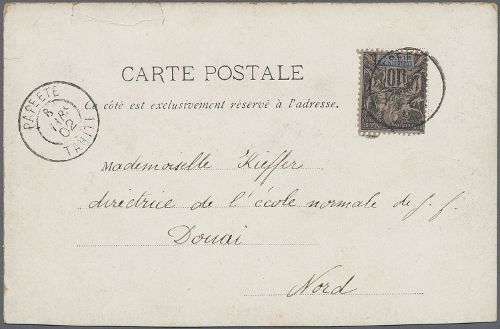 CARTE POSTALE
Ce côté est exclusivement réservé à l'adresse.
PAPEETE
8
02
TAHITI
10
Mademoiselle Kieffer
directrice de l'école normale de j. f.
Douai
Nord